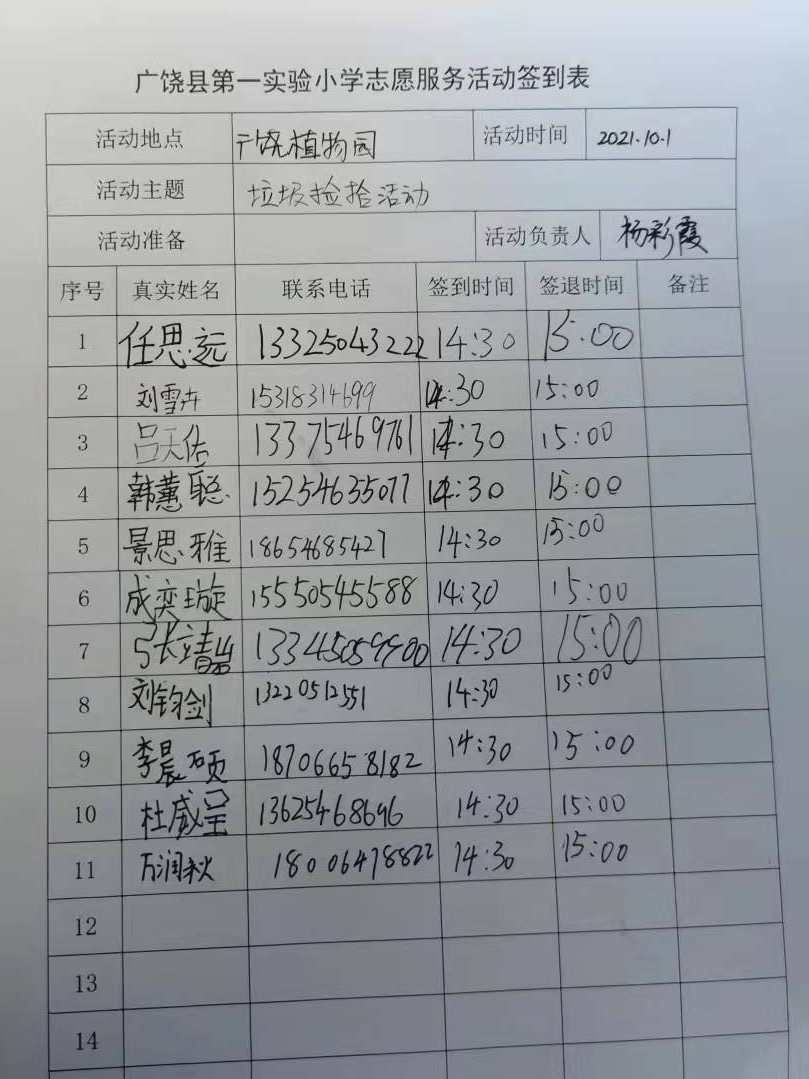 广饶县第一实验小学志愿服务活动签到表
活动地点 广饶植物园 活动时间 2021.10.1
活动主题 垃圾捡拾活动
活动准备 活动负责人 杨彩霞
序号 真实姓名 联系电话 签到时间 签退时间 备注
1 任思远 13325043222 14:30 15:00
2 刘雪卉 15318314699 14:30 15:00
3 吕天佑 13375469761 14:30 15:00
4 韩蕙聪 15254635077 14:30 15:00
5 景思雅 18654685427 14:30 15:00
6 成奕璇 15550545588 14:30 15:00
7 14:30 15:00
8 刘钧剑 13220512551 14:30 15:00
9 李晨硕 18706658182 14:30 15:00
10 杜威呈 13625468696 14:30 15:00
11 万润秋 18006478822 14:30 15:00
12
13
14